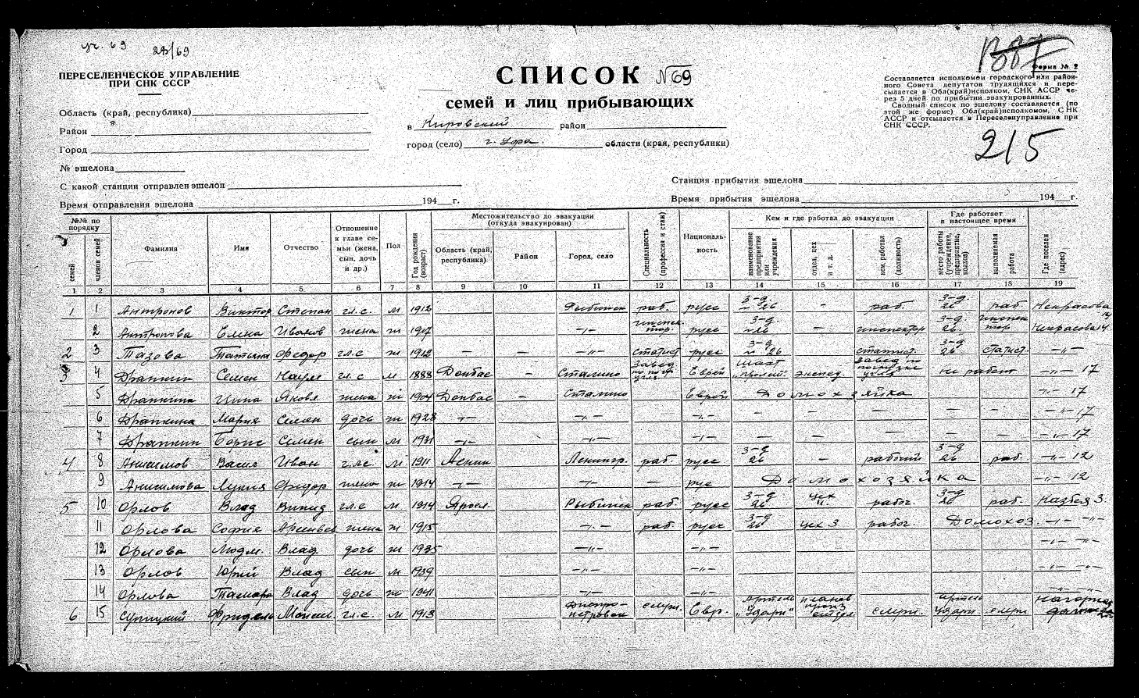 №. 69 28/69
ПЕРЕСЕЛЕНЧЕСКОЕ УПРАВЛЕНИЕ
ПРИ СНК СССР
СПИСОК № 69
семей и лиц прибывающих
Форма № 2
Составляется исполкомом городского или район-
ного Совета депутатов трудящихся и пере-
сылается в Обл(край)исполком, СНК АССР че-
рез 5 дней по прибытии эвакуированных.
Сводный список по эшелону составляется (по
этой же форме) Обл(край)исполкомом, СНК
АССР и отсылается в Переселенуправление при
СНК СССР.
215
Область (край, республика)
Район
Город
№ эшелона
С какой станции отправлен эшелон
Время отправления эшелона 194 г.
в Кировский район
город (село) г. Уфа. области (края, республики)
Станция прибытия эшелона
Время прибытия эшелона 194 г.
№№ по порядку
семей
членов семей
Фамилия
Имя
Отчество
Отношение к главе семьи (жена, сын, дочь и др.)
Пол
Год рождения (возраст)
Местожительство до эвакуации (откуда эвакуирован)
Область (край, республика)
Район
Город, село
Специальность (профессия и стаж)
Националь-ность
Кем и где работал до эвакуации
наименование предприятия или учреждения
отдел, цех и т. д.
кем работал (должность)
Где работает в настоящее время
место работы (учреждение, предприятие, колхоз)
выполняемая работа
Где поселен (адрес)
1 2 3 4 5 6 7 8 9 10 11 12 13 14 15 16 17 18 19
1 1 Антронов Виктор Степан гл.с м 1912 Рыбинск раб. русс 3-д № 26 - раб. 3-д 26 раб Некрасова
2 Елена Иванов жена ж 1907 -"- русс 3-д №26 - 3-д 26. Некрасова 14
2 3 Тазова Татьяна Федор гл.с ж 1912 - - -"- статист русс 3-д № 26 - статист. 3-д 26 статист. -"-
3 4 Драпкин Семен Наум гл.с м 1888 Донбас - Сталино Еврей не работ -"- 17
5 Драпкина Цина Яковл жена ж 1904 Донбас - Сталино Еврей Домохозяйка -"- 17
6 Драпкина Мария Семен дочь ж 1923 -"- -"- -"- - - - - - -"- 17
7 Драпкин Борис Семен сын м 1931 -"- -"- -"- - -"- 17
4 8 Анисимов Васил Иван гл.с м 1911 Ленин Ленингр. раб. русс 3-д 26 - рабочий 3-д 26 раб -"- 12
9 Анисимова Лукия Федор жена ж 1914 -"- -"- - рус Домохозяйка -"- 12
5 10 Орлов Влад гл.с м 1914 Яросл. Рыбинск раб. русс 3-д 26 цех рабоч. 3-д 26 раб. 3.
11 Орлова София жена ж 1915 -"- раб. русс 3-д 26 цех 3 рабоч Домохоз. -"- -"-
12 Орлова Людм. Влад дочь ж 1935 -"- -"- -"-
13 Орлов Юрий Влад сын м 1939 -"- -"- -"-
14 Орлова Тамара Влад дочь ж 1941 -"- -"- -"-
6 15 гл.с. м 1913 служ. Евр. артель „Ударн" служ. артель Ударн. служ.